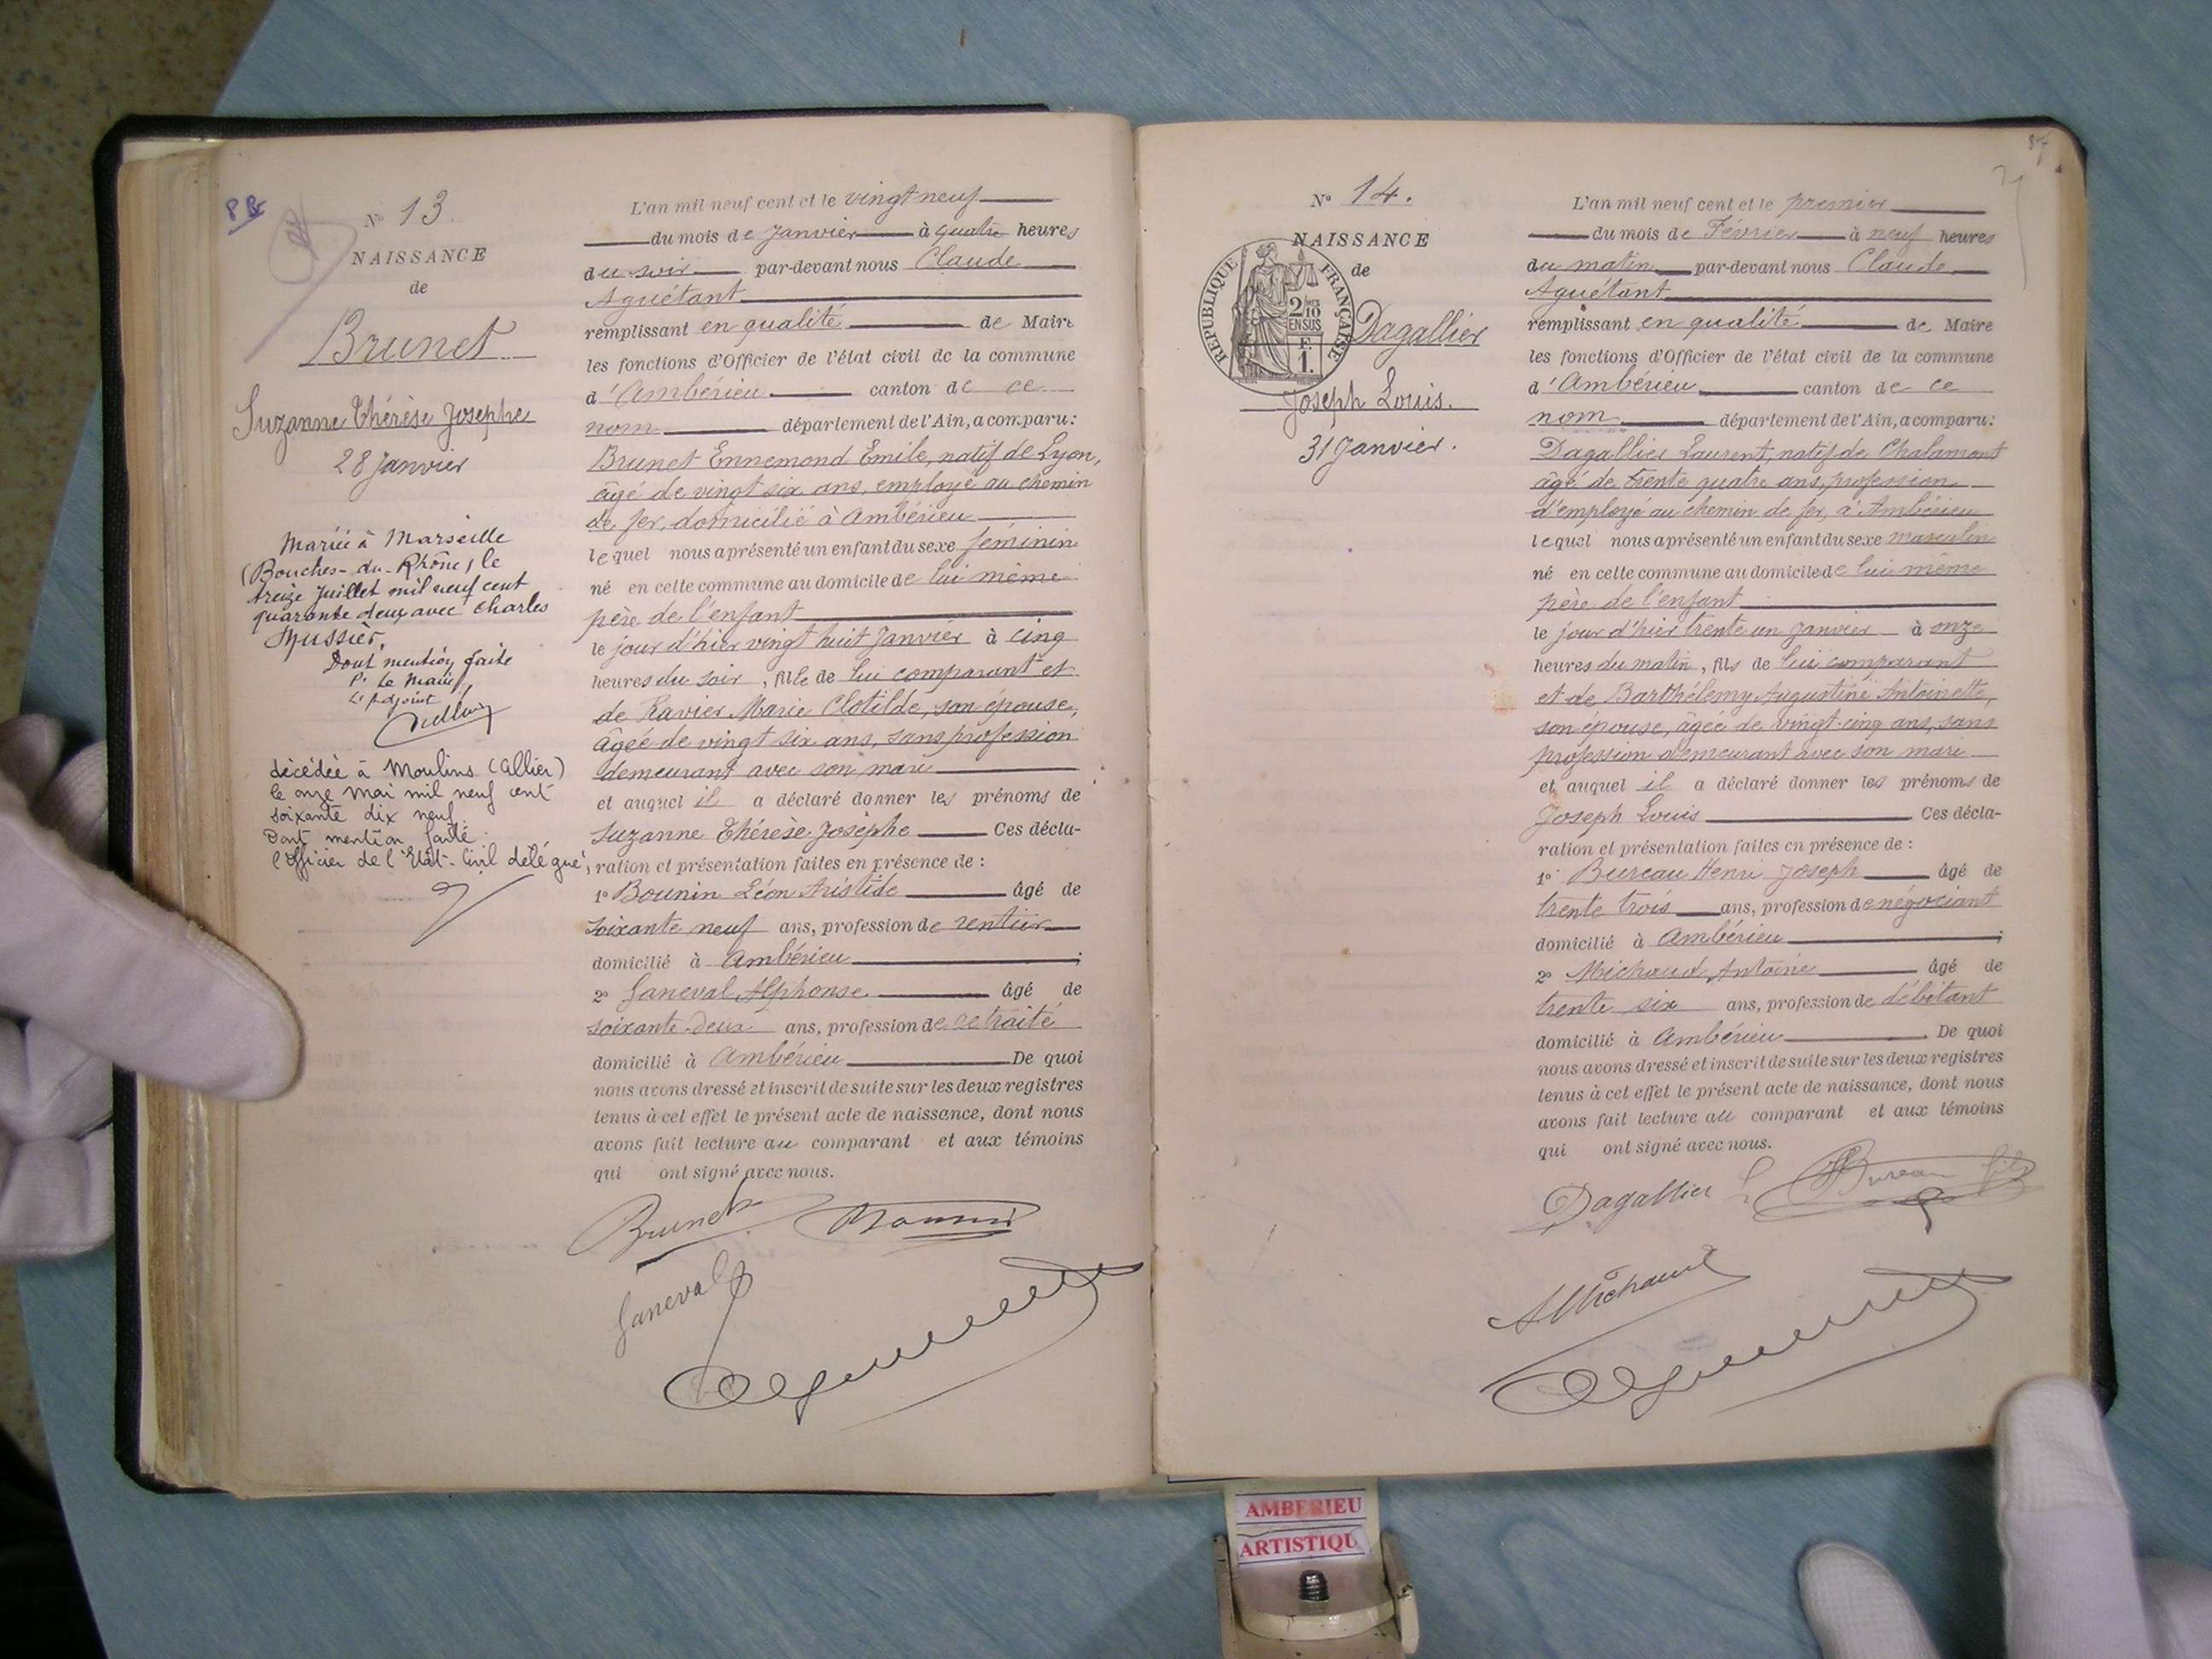 PB
N° 13.
NAISSANCE
de
Brunet
Suzanne Thérèse Josephe
28 Janvier
Mariée à Marseille
(Bouches-du-Rhône) le
treize Juillet mil neuf cent
quarante deux avec Charles
Mussier.
Dont mention faite
Pr Le Maire,
L'Adjoint
décédée à Moulins (Allier)
le onze mai mil neuf cent
soixante dix neuf.
Dont mention faite
l'Officier de l'Etat-Civil délégué,
L'an mil neuf cent et le vingt neuf
du mois de Janvier à quatre heures
du soir par-devant nous Claude
Aguétant
remplissant en qualité de Maire
les fonctions d'Officier de l'état civil de la commune
d'Ambérieu canton de ce
nom département de l'Ain, a comparu:
Brunet Ennemond Emile, natif de Lyon,
âgé de vingt six ans, employé au chemin
de fer, domicilié à Ambérieu
lequel nous a présenté un enfant du sexe féminin
né en cette commune au domicile de lui même
père de l'enfant
le jour d'hier vingt huit Janvier à cinq
heures du soir, fille de lui comparant et
de Ravier Marie Clotilde, son épouse,
âgée de vingt six ans, sans profession
demeurant avec son mari
et auquel il a déclaré donner les prénoms de
Suzanne Thérèse Josèphe Ces décla-
ration et présentation faites en présence de :
1° Bounin Léon Aristide âgé de
soixante neuf ans, profession de rentier
domicilié à Ambérieu ;
2° Janeval Alphonse âgé de
soixante-deux ans, profession de retraité
domicilié à Ambérieu De quoi
nous avons dressé et inscrit de suite sur les deux registres
tenus à cet effet le présent acte de naissance, dont nous
avons fait lecture au comparant et aux témoins
qui ont signé avec nous.
Brunet Bounin
Janeval
Aguétant
87
N° 14.
NAISSANCE
de
REPUBLIQUE FRANÇAISE
2/10 MES
EN SUS
F.
1.
Dagallier
Joseph Louis.
31 Janvier.
L'an mil neuf cent et le premier
du mois de Février à neuf heures
du matin par-devant nous Claude
Aguétant
remplissant en qualité de Maire
les fonctions d'Officier de l'état civil de la commune
d'Ambérieu canton de ce
nom département de l'Ain, a comparu:
Dagallier Laurent, natif de Chalamont
âgé de trente quatre ans, profession
d'employé au chemin de fer, à Ambérieu
lequel nous a présenté un enfant du sexe masculin
né en cette commune au domicile de lui même
père de l'enfant
le jour d'hier trente un Janvier à onze
heures du matin, fils de lui comparant
et de Barthélemy Augustine Antoinette,
son épouse, âgée de vingt-cinq ans, sans
profession demeurant avec son mari
et auquel il a déclaré donner les prénoms de
Joseph Louis Ces décla-
ration et présentation faites en présence de :
1° Bureau Henri Joseph âgé de
trente trois ans, profession de négociant
domicilié à Ambérieu ;
2° Michaud Antoine âgé de
trente six ans, profession de débitant
domicilié à Ambérieu. De quoi
nous avons dressé et inscrit de suite sur les deux registres
tenus à cet effet le présent acte de naissance, dont nous
avons fait lecture au comparant et aux témoins
qui ont signé avec nous.
Dagallier L Bureau fils
A Michaud
Aguétant
AMBERIEU
ARTISTIQU